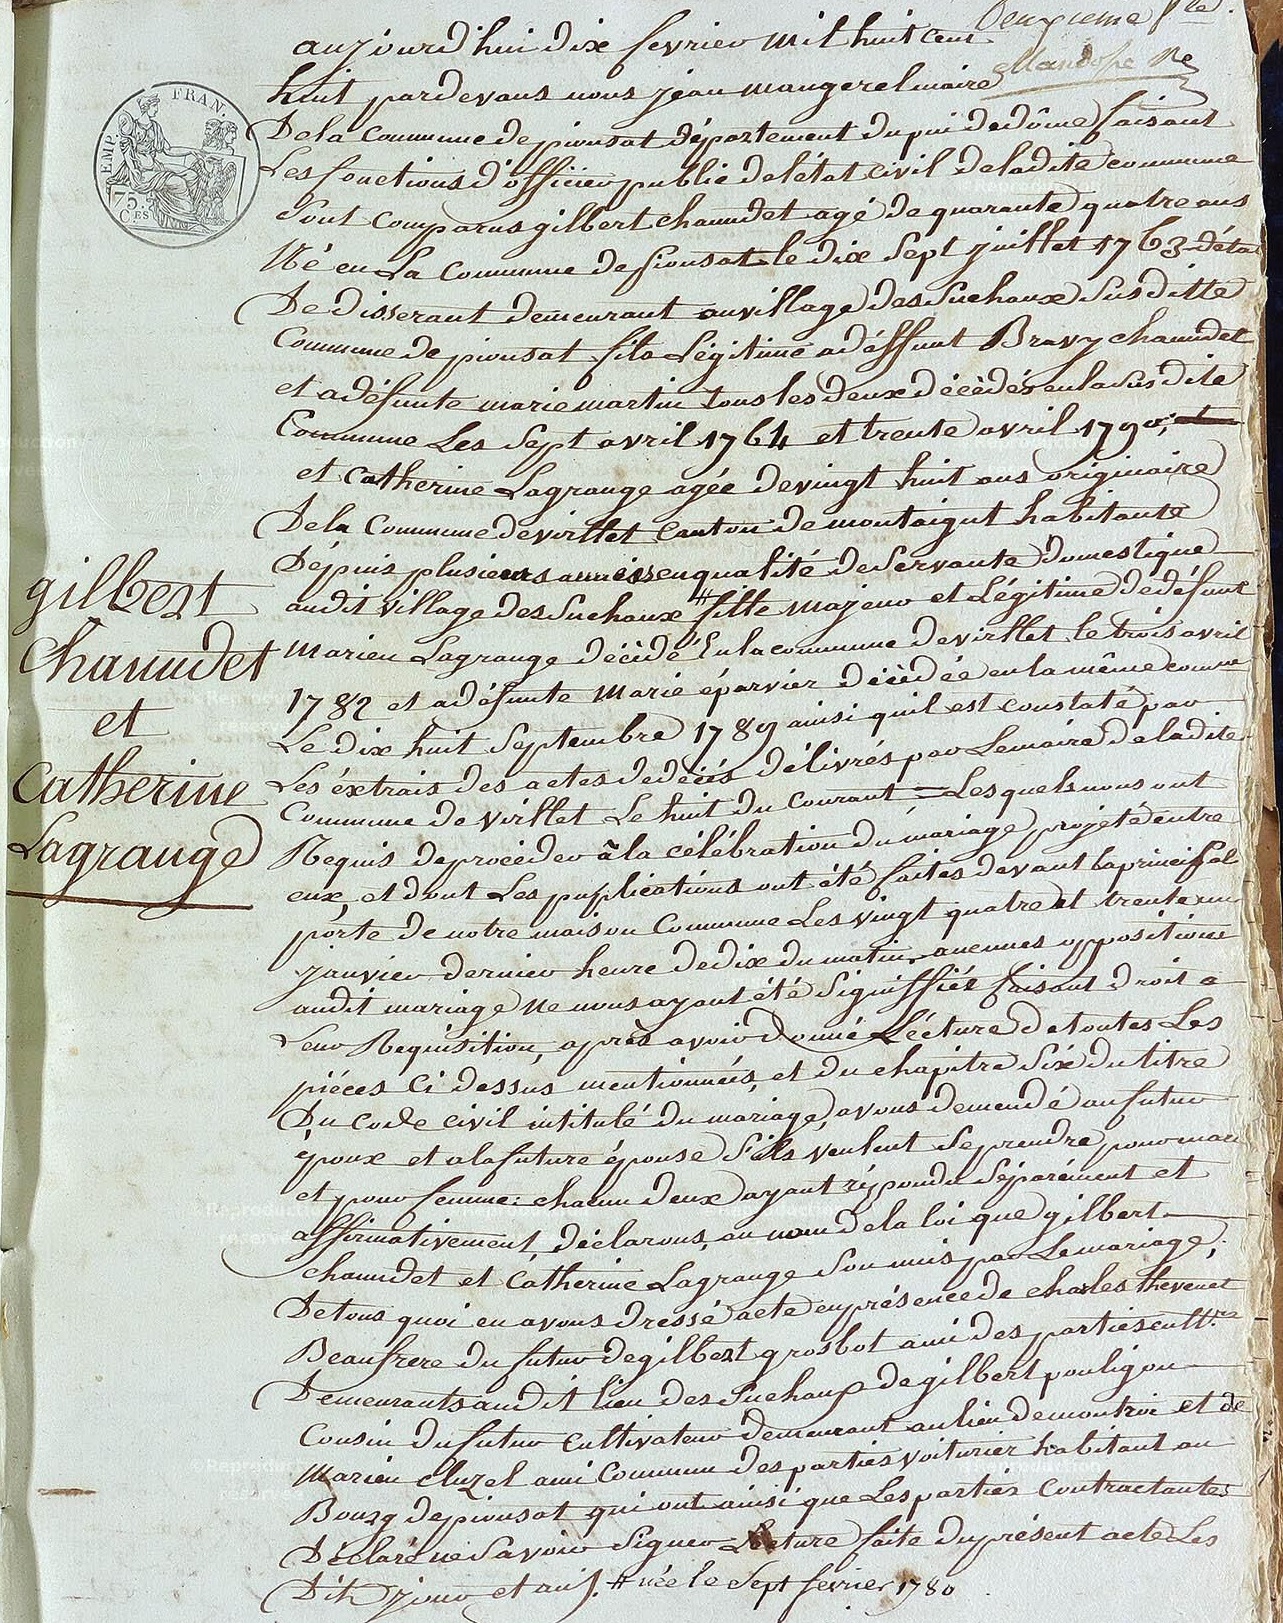 Deuxieme f.le
aujourd'hui dix fevrier mil huit cent
huit pardevans nous jean maugerel maire
Dela commune depionsat département du pui dedôme faisant
Les fonctions d'officier public deletat civil deladite commune
Sont comparus gilbert chaumdet agé de quarante quatre ans
Né en La commune de pionsat le dix sept juillet 1763 déta
De disserant demeurant auvillage des Suchaux Susditte
Commune de pionsat fils Légitime a déffunt Bravy chaumdet
et a défunte marie martin tous les deux décèdés enla susdite
Commune Les sept avril 1764 et trente avril 1790;
et catherine Lagrange agée devingt huit ans originaire
Dela commune devirllet canton de montaigut habitante
Dépuis plusieurs années enqualité de Servante domestique
audit village des Suchaux # fille majeur et Légitime de défunt
Marien Lagrange décèdé Enlacommune devirllet le trois avril
1782 et a défunte Marie épervier décèdée en la même comne
Le dix huit Septembre 1789 ainsi quil est constaté par
Les éxtrais des actes dedécès délivrés par Lemaire deladite
Commune de virllet Le huit du courant = Lesquels nous ont
Requis deprocéder à la célébration du mariage projeté entre
eux, et dont Les puplications ont été faites devant laprincipal
porte de notre maison Commune Les vingt quatre et trente un
janvier dernier heure dedix du matin, aucunes oppositions
audit mariage ne nous ayant été Signiffiés faisant droit a
Leur Requisition, après avoir donné Lécture de toutes Les
pièces ci dessus mentionnées, et du chapitre Six du titre
Du code civil intitulé du mariage, avons demendé au futur
époux et alafuture épouse s'ils veulent se prendre pour mari
et pour femme: chacun deux ayant répondu Séparément et
affirmativement, déclarons, au nom dela loi que gilbert
chaumdet et Catherine Lagrange Son unis par Lemariage;
De tous quoi en avons dressé acte enprésence de charles thevenet
Beaufrere du futur de gilbert grosbot ami des parties cultrs
Demeurants audit lieu des Suchaux de gilbert pouligon
Cousin du futur cultivateur demeurant aulieu demontroi et de
Marien cluzel ami commun des parties voiturier habitant au
Bourg depionsat qui ont ainsi que Lesparties contractantes
Déclaré ne Savoir Signer Lecture faite duprésent acte Les
Dit jour et an /. # née le sept fevrier 1780
gilbert
Chaumdet
et
Catherine
Lagrange
TEMP. FRAN.
75. Ces